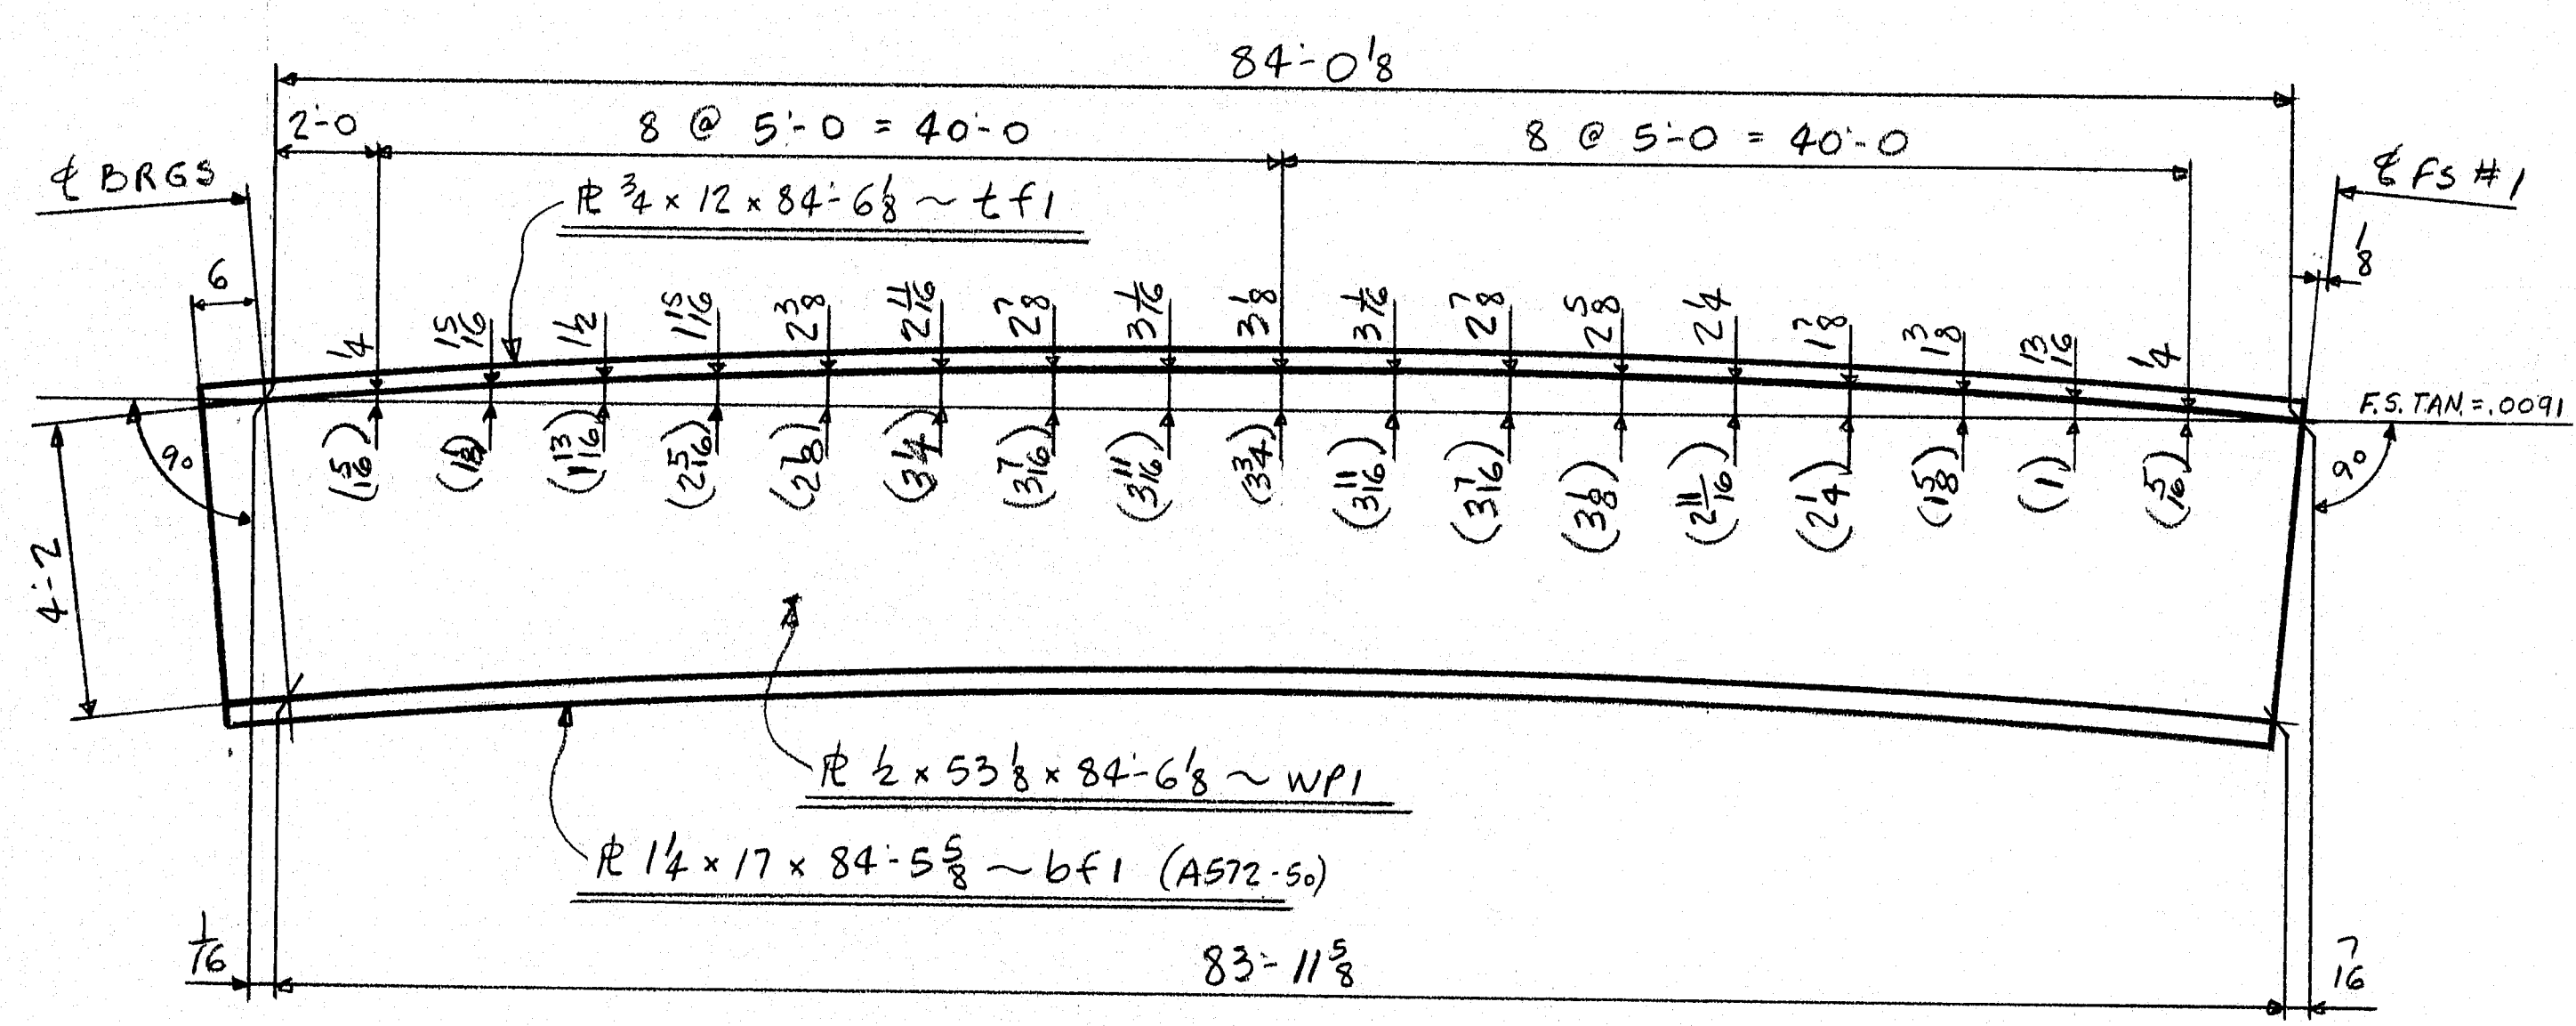 84'-0 1/8
2'-0
8 @ 5'-0 = 40'-0
8 @ 5'-0 = 40'-0
℄ BRGS
℄ FS #1
PL 3/4 x 12 x 84'-6 1/8 ~ tf1
6
1/8
1/4
15/16
1 1/2
1 15/16
2 3/8
2 11/16
2 7/8
3 1/16
3 1/8
3 1/16
2 7/8
2 5/8
2 1/4
1 7/8
1 3/8
13/16
1/4
F.S. TAN. = .0091
90
(5/16)
(1 13/16)
(2 5/16)
(2 7/8)
(3 1/4)
(3 7/16)
(3 11/16)
(3 3/4)
(3 11/16)
(3 7/16)
(3 1/8)
(2 11/16)
(2 1/4)
(1 5/8)
(1)
(5/16)
90
4'-2
PL 1/2 x 53 1/8 x 84'-6 1/8 ~ WP1
PL 1 1/4 x 17 x 84'-5 5/8 ~ bf1 (A572-50)
1/16
83'-11 5/8
7/16